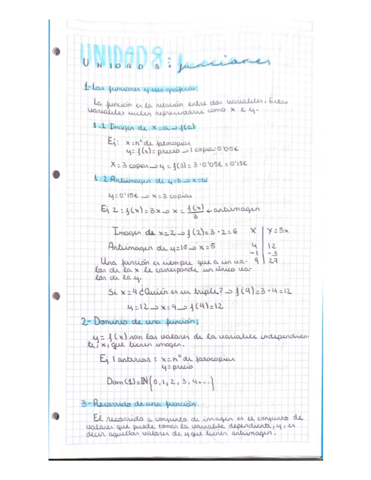 UNIDAD 8: funciones
1-Las funciones y sus gráficas:
La función es la relación entre dos variables. Estas
variables suelen representarse como x e y.
1.1 Imagen de x=a → f(a)
Ej: x = nº de fotocopias
y = f(x) = precio → 1 copia: 0'05€
X = 3 copias → y = f(3) = 3·0'05€ = 0'15€
1.2 Antiimagen de y=b → x=a
y = 0'15€ → x = 3 copias
Ej 2: f(x) = 3x → x = f(x)/6 → antiimagen
Imagen de x=2 → f(2) = 3·2 = 6 X | Y=3x
Antiimagen de y=15 → x=5 4 | 12
-1 | -3
Una función es siempre que a un va- 9 | 27
lor de la x le corresponde un único va-
lor de la y.
Si x=4 ¿Quién es su triple? → f(4) = 3·4 = 12
y=12 → x=4 → f(4) = 12
2- Dominio de una función:
y = f(x) son los valores de la variable independien-
te, x, que tienen imagen.
Ej 1 anterior: x = nº de fotocopias
y = precio
Dom(f) = ℕ {0, 1, 2, 3, 4...}
3- Recorrido de una función.
El recorrido o conjunto de imagen es el conjunto de
valores que puede tomar la variable dependiente, y, es
decir aquellos valores de y que tienen antiimagen.